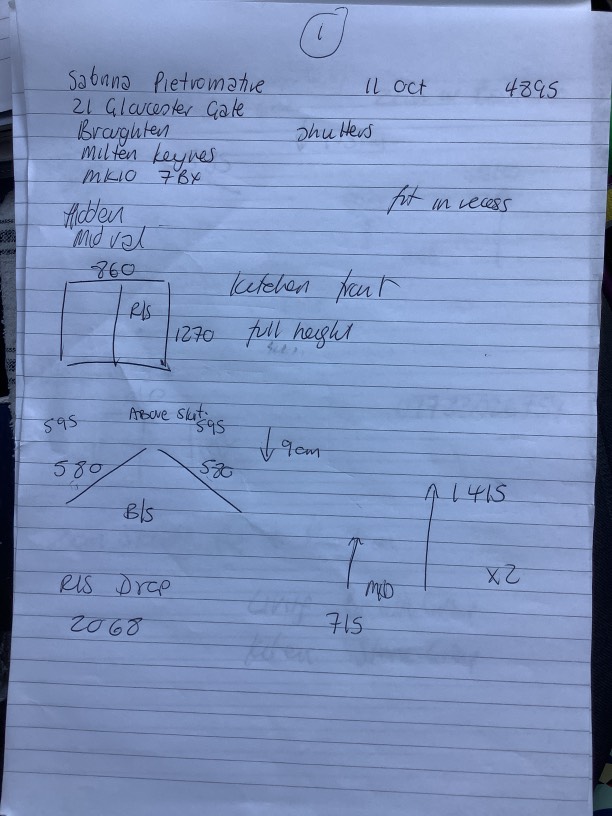 1
Sabrina Pietromatire 11 Oct 4895
21 Glaucester Gate
Braughten shutters
Milten keynes
MK10 7BX
fit in recess
Hidden
Mid val
860 kitchen front
R/S
1270 full height
Above skirt.
595 595
9cm
580 580
1415
B/S
R/S Drop MID x2
2068 715